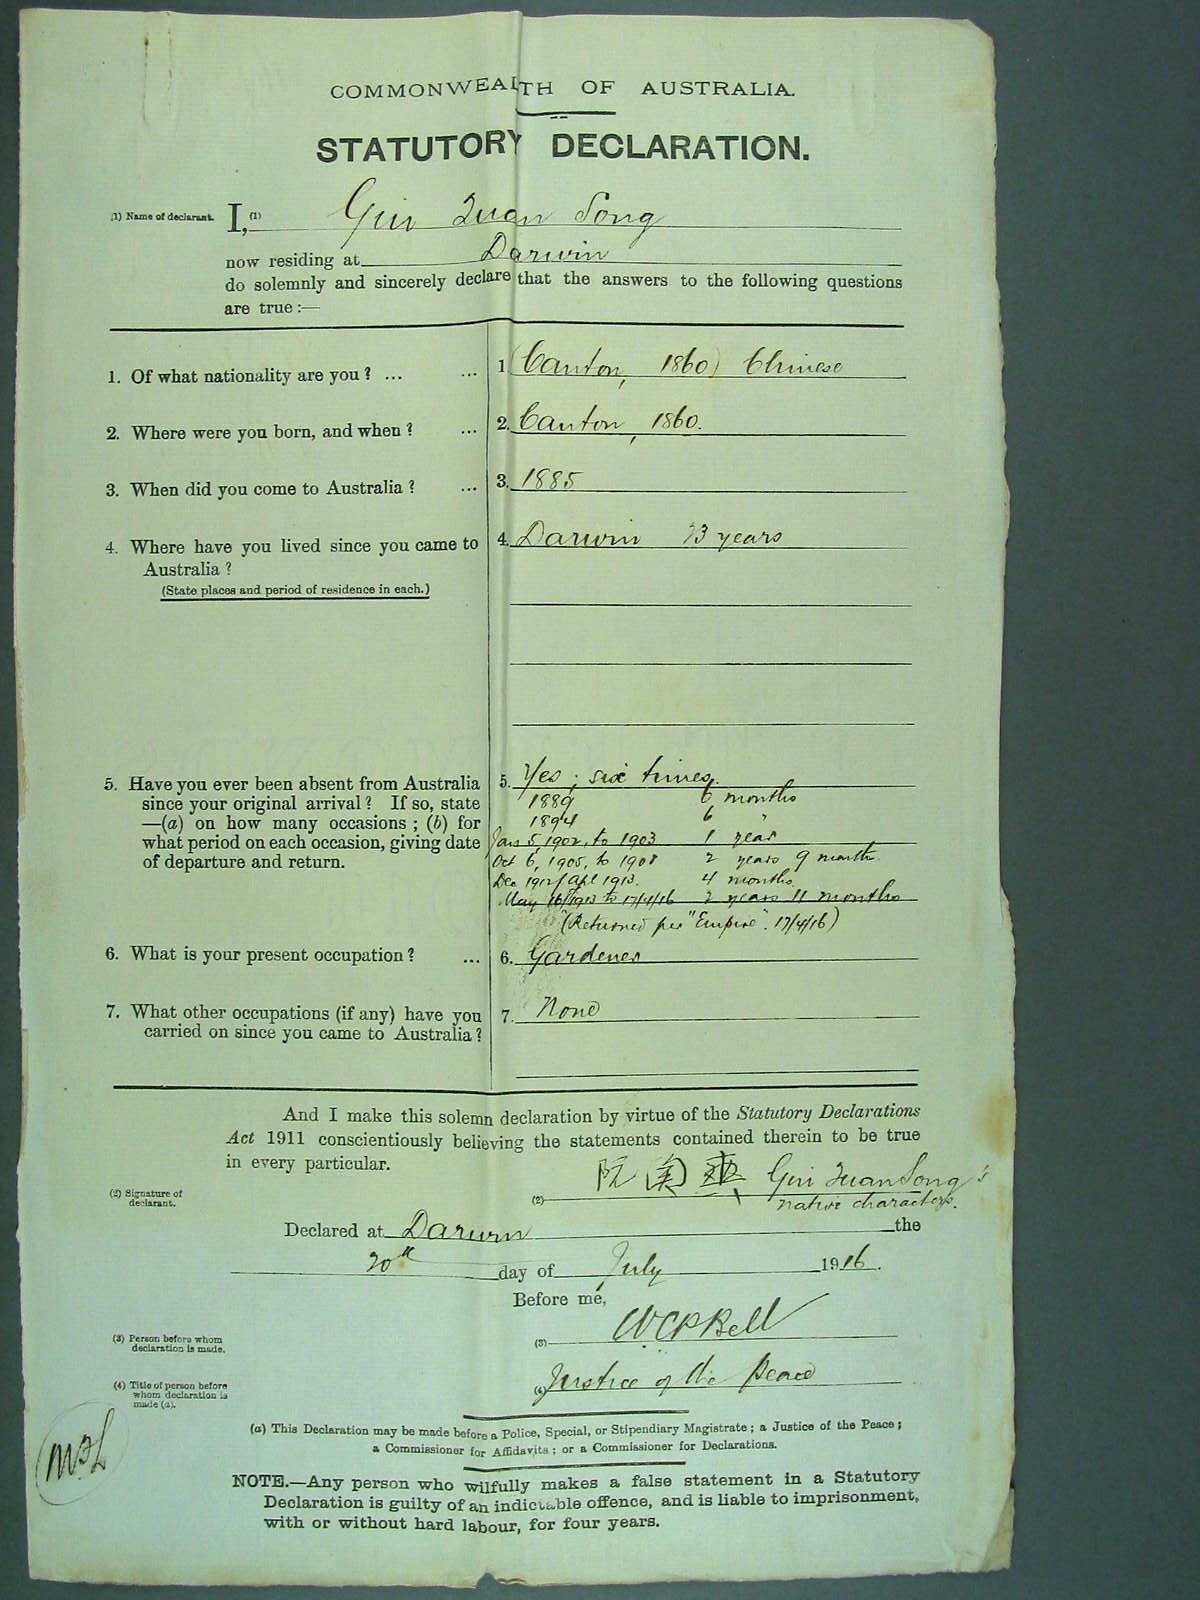 COMMONWEALTH OF AUSTRALIA.
STATUTORY DECLARATION.
(1) Name of declarant. I, (1) Gin Quan Song
now residing at Darwin
do solemnly and sincerely declare that the answers to the following questions
are true :—
1. Of what nationality are you ? ... ... 1 (Canton, 1860) Chinese
2. Where were you born, and when ? ... 2. Canton, 1860.
3. When did you come to Australia ? ... 3. 1885
4. Where have you lived since you came to 4. Darwin 23 years
Australia ?
(State places and period of residence in each.)
5. Have you ever been absent from Australia 5. Yes ; six times.
since your original arrival ? If so, state 1889 6 months
—(a) on how many occasions ; (b) for 1894 6 "
what period on each occasion, giving date Jan 5, 1902, to 1903 1 year
of departure and return. Oct 6, 1905, to 1908 2 years 9 month
Dec 1912/Apl 1913. 4 months.
May 16/1913 to 17/4/16 2 years 11 months
(Returned per "Empire". 17/4/16)
6. What is your present occupation ? ... 6. Gardener
7. What other occupations (if any) have you 7. None
carried on since you came to Australia ?
And I make this solemn declaration by virtue of the Statutory Declarations
Act 1911 conscientiously believing the statements contained therein to be true
in every particular.
(2) Signature of declarant. (2) 阮 Gin Quan Song's
native characters.
Declared at Darwin the
20th day of July 1916.
Before me,
(3) Person before whom declaration is made. (3) Bell
(4) Title of person before whom declaration is made (a). (4) Justice of the Peace
(a) This Declaration may be made before a Police, Special, or Stipendiary Magistrate ; a Justice of the Peace ;
a Commissioner for Affidavits ; or a Commissioner for Declarations.
NOTE.—Any person who wilfully makes a false statement in a Statutory
Declaration is guilty of an indictable offence, and is liable to imprisonment,
with or without hard labour, for four years.